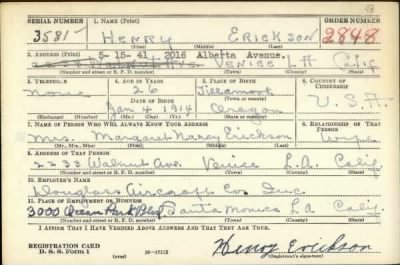 SERIAL NUMBER 1. NAME (Print) ORDER NUMBER
3581 HENRY ERICKSON 2848
(First) (Middle) (Last)
2. ADDRESS (Print) 5-15-41, 2016 Alberta Avenue,
VENICE L A Calif
(Number and street or R. F. D. number) (Town) (County) (State)
3. TELEPHONE 4. AGE IN YEARS 5. PLACE OF BIRTH 6. COUNTRY OF CITIZENSHIP
None 26 Tillamook
DATE OF BIRTH (Town or county)
Jan 4 1914 Oregon U.S.A.
(Mo.) (Day) (Yr.) (State or country)
7. NAME OF PERSON WHO WILL ALWAYS KNOW YOUR ADDRESS 8. RELATIONSHIP OF THAT PERSON
Mrs. Margaret Nancy Erickson Wife
(Mr., Mrs., Miss) (First) (Middle) (Last)
9. ADDRESS OF THAT PERSON
2233 Walnut Ave. Venice L.A. Calif
(Number and street or R. F. D. number) (Town) (County) (State)
10. EMPLOYER'S NAME
Douglass Aircraft Co Inc.
11. PLACE OF EMPLOYMENT OR BUSINESS
3000 Ocean Park Blvd Santa Monica L A Calif.
(Number and street or R. F. D. number) (Town) (County) (State)
I AFFIRM THAT I HAVE VERIFIED ABOVE ANSWERS AND THAT THEY ARE TRUE.
REGISTRATION CARD
D. S. S. Form 1 Henry Erickson
(Registrant's signature)